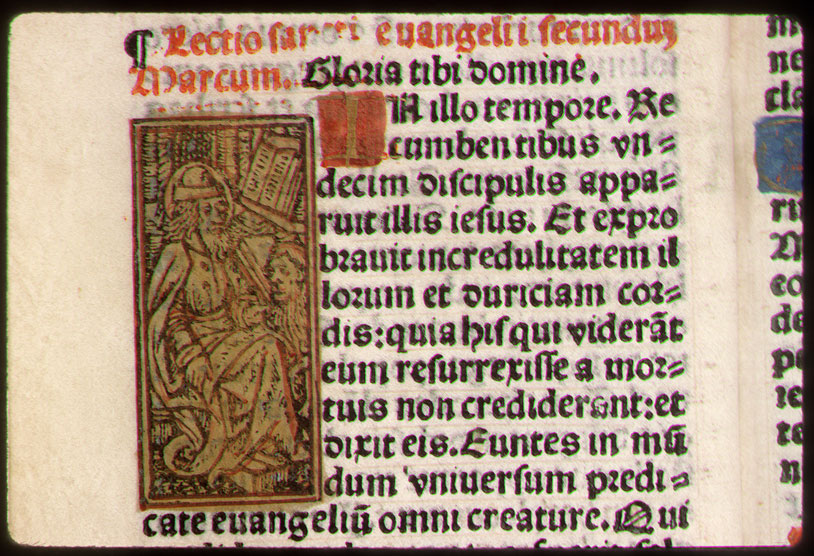 ¶ Lectio sancti euangelii secundum
Marcum. Gloria tibi domine.
IN illo tempore. Re
cumbentibus vn=
decim discipulis appa=
ruit illis iesus. Et expro
brauit incredulitatem il
lorum et duriciam cor=
dis: quia his qui viderāt
eum resurrexisse a mor=
tuis non crediderunt: et
dixit eis. Euntes in mū
dum vniuersum predi=
cate euangeliū omni creature. Qui